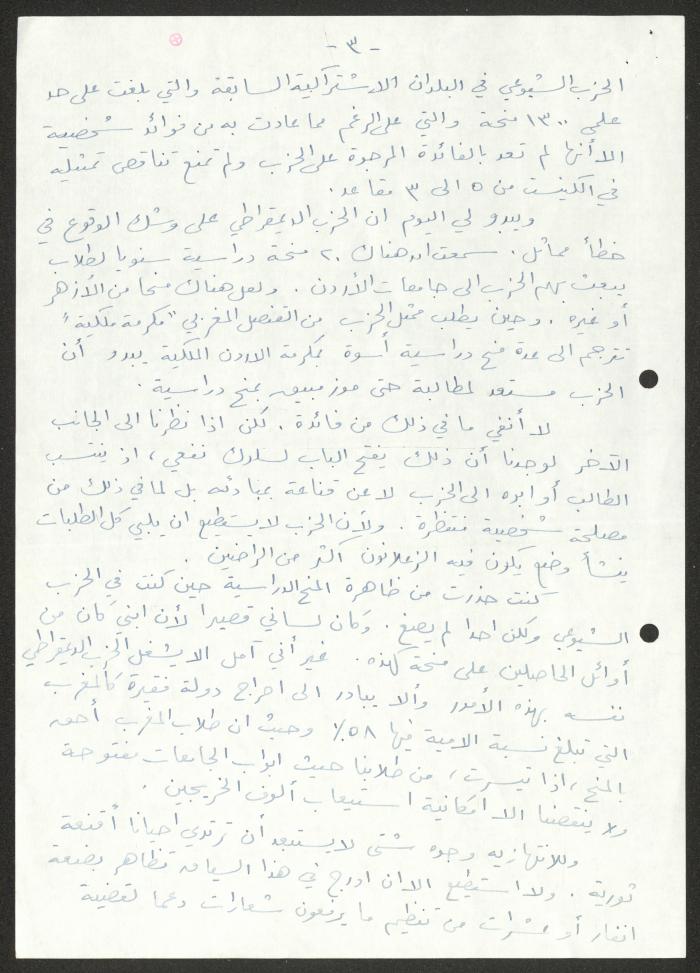 - ٣ -
الحزب الشيوعي في البلدان الاشتراكية السابقة والتي بلغت على حد
علمي ١٣٠٠ منحة والتي على الرغم مما عادت به من فوائد شخصية
الا أنها لم تعد بالفائدة المرجوة على الحزب ولم تمنع تناقص تمثيله
في الكنيست من ٥ الى ٣ مقاعد.
ويبدو لي اليوم ان الحزب الديمقراطي على وشك الوقوع في
خطأ مماثل. سمعت ان هناك ٢٠ منحة دراسية سنويا لطلاب
يبعث بهم الحزب الى جامعات الأردن. ولعل هناك منحا من الأزهر
أو غيره. وحين يطلب ممثل الحزب من القنصل المغربي "مكرمة ملكية"
تترجم الى عدة منح دراسية أسوة بمكرمة الاردن الملكية يبدو أن
الحزب مستعد لمطالبة حتى موزمبيق بمنح دراسية.
لا أنفي ما في ذلك من فائدة. لكن اذا نظرنا الى الجانب
الآخر لوجدنا أن ذلك يفتح الباب لسلوك نفعي، اذ ينتسب
الطالب أو ابوه الى الحزب لا عن قناعة بمبادئه بل لما في ذلك من
مصلحة شخصية منتظرة. ولأن الحزب لا يستطيع ان يلبي كل الطلبات
ينشأ وضع يكون فيه الزعلانون اكثر من الراضين.
كنت حذرت من ظاهرة المنح الدراسية حين كنت في الحزب
الشيوعي ولكن احدا لم يصغ. وكان لساني قصيرا لأن ابني كان من
أوائل الحاصلين على منحة كهذه. غير أني آمل الا يشغل الحزب الديمقراطي
نفسه بهذه الأمور وألا يبادر الى احراج دولة فقيرة كالمغرب
التي تبلغ نسبة الامية فيها ٥٨٪ وحيث ان طلاب المغرب أحق
بالمنح، اذا تيسرت، من طلابنا حيث ابواب الجامعات مفتوحة
ولا ينقصنا الا امكانية استيعاب ألوف الخريجين.
وللانتهازية وجوه شتى لا يستبعد أن ترتدي احيانا أقنعة
ثورية. ولا استطيع الا ان ادرج في هذا السياق تظاهر بضعة
انفار أو عشرات من تنظيم ما يرفعون شعارات دعما لقضية